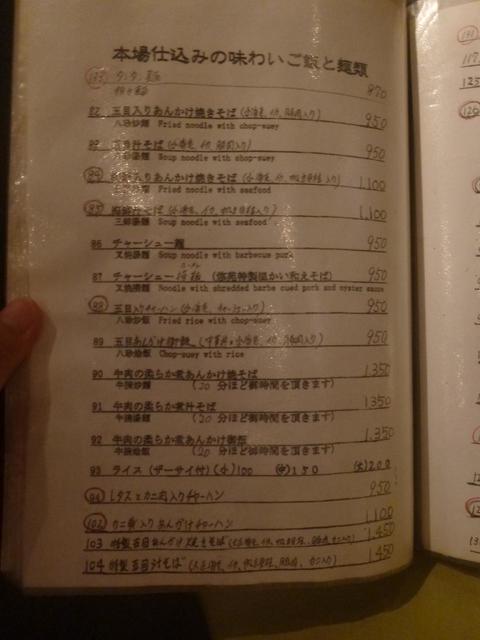 本場仕込みの味わいご飯と麺類
タンタン麺 870
担々麺
82 五目入りあんかけ焼きそば (小海老, イカ, 豚肉入り) 950
八珍炒麺 Fried noodle with chop-suey
汁そば (小海老, イカ, 豚肉入り) 950
八珍湯麺 Soup noodle with chop-suey
84 入りあんかけ焼きそば (小海老, イカ, 入り) 1,100
三鮮炒麺 Fried noodle with seafood
85 海鮮汁そば (小海老, イカ, 入り) 1,100
三鮮湯麺 Soup noodle with seafood
86 チャーシュー麺 950
叉焼湯麺 Soup noodle with barbecue pork
87 チャーシュー (特製温かい和えそば) 950
叉焼撈麺 Noodle with shredded barbe cued pork and oyster sauce
88 五目入りチャーハン (小海老, チャーシュー入り) 950
八珍炒飯 Fried rice with chop-suey
89 五目あんかけ御飯 950
八珍烩飯 Chop-suey with rice
90 牛肉の柔らか煮あんかけ焼そば 1,350
牛腩炒麺 (20 分ほど御時間を頂きます)
91 牛肉の柔らか煮汁そば 1,350
牛腩湯麺 (20 分ほど御時間を頂きます)
92 牛肉の柔らか煮あんかけ御飯 1,350
牛腩烩飯 (20 分ほど御時間を頂きます)
93 ライス (ザーサイ付) (小) 100 (中) 150 (大) 200
94 レタスとカニ肉入りチャーハン 950
102 カニ肉入りあんかけチャーハン 1,100
103 特製五目あんかけ焼きそば 1,450
104 特製五目汁そば 1,450
131
117
125
126